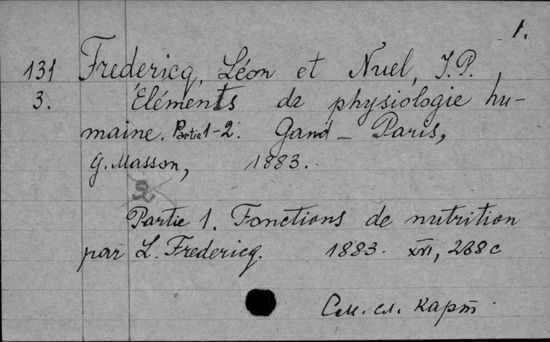 1.
131 Fredericq, Léon et Nuel, J.P.,
3. Éléments de physiologie hu-
maine. Partie 1-2. Gand - Paris,
G. Masson, 1883.
Partie 1. Fonctions de nutrition
par L. Fredericq. 1883. XVI, 268 c
См. сл. карт.